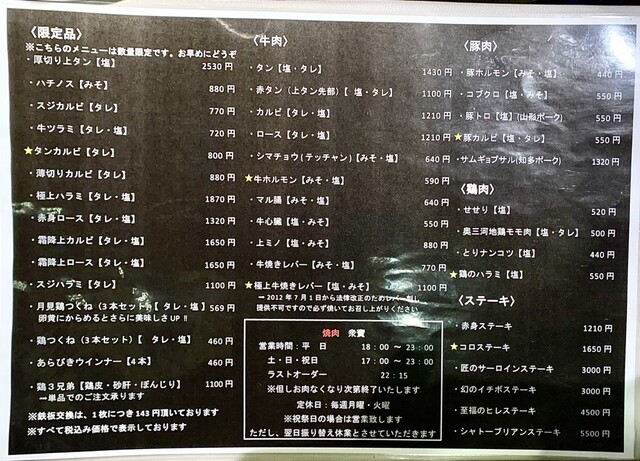 〈限定品〉
※こちらのメニューは数量限定です。お早めにどうぞ
・厚切り上タン【塩】 2530円
・ハチノス【みそ】 880円
・スジカルビ【タレ】 770円
・牛ツラミ【タレ・塩】 720円
★タンカルビ【タレ】 800円
・薄切りカルビ【タレ】 880円
・極上ハラミ【タレ・塩】 1870円
・赤身ロース【タレ・塩】 1320円
・霜降上カルビ【タレ・塩】 1650円
・霜降上ロース【タレ・塩】 1650円
・スジハラミ【タレ】 1100円
・月見鶏つくね(3本セット)【タレ・塩】 569円
卵黄にからめるとさらに美味しさUP‼
・鶏つくね(3本セット)【 タレ・塩】 460円
・あらびきウインナー【4本】 460円
・鶏3兄弟【鶏皮・砂肝・ぼんじり】 1100円
→単品でのご注文承ります
※鉄板交換は、1枚につき143円頂いております
※すべて税込み価格で表示しております
〈牛肉〉
・タン【塩・タレ】 1430円
・赤タン(上タン先部)【 塩・タレ】 1100円
・カルビ【タレ・塩】 1210円
・ロース【タレ・塩】 1210円
・シマチョウ(テッチャン)【みそ・塩】 640円
★牛ホルモン【みそ・塩】 590円
・マル腸【みそ・塩】 640円
・牛心臓【塩・みそ】 550円
・上ミノ【塩・みそ】 880円
・牛焼きレバー【みそ・塩】 770円
★極上牛焼きレバー【塩・みそ】 1100円
→2012年7月1日から法律改正のためレバー刺し
提供不可ですので必ず焼いてお召し上がりください
焼肉 衆寶
営業時間:平 日 18:00〜23:00
土・日・祝日 17:00〜23:00
ラストオーダー 22:15
※但しお肉なくなり次第終了いたします
定休日:毎週月曜・火曜
※祝祭日の場合は営業致します
ただし、翌日振り替え休業とさせていただきます
〈豚肉〉
・豚ホルモン【みそ・塩】 440円
・コブクロ【塩・みそ】 550円
・豚トロ【塩】(山形ポーク) 550円
★豚カルビ【塩・タレ】 550円
・サムギョプサル(知多ポーク) 1320円
〈鶏肉〉
・せせり【塩】 520円
・奥三河地鶏モモ肉【塩・タレ】 500円
・とりナンコツ【塩】 440円
★鶏のハラミ【塩】 550円
〈ステーキ〉
・赤身ステーキ 1210円
★コロステーキ 1650円
・匠のサーロインステーキ 3000円
・幻のイチボステーキ 3000円
・至福のヒレステーキ 4500円
・シャトーブリアンステーキ 5500円